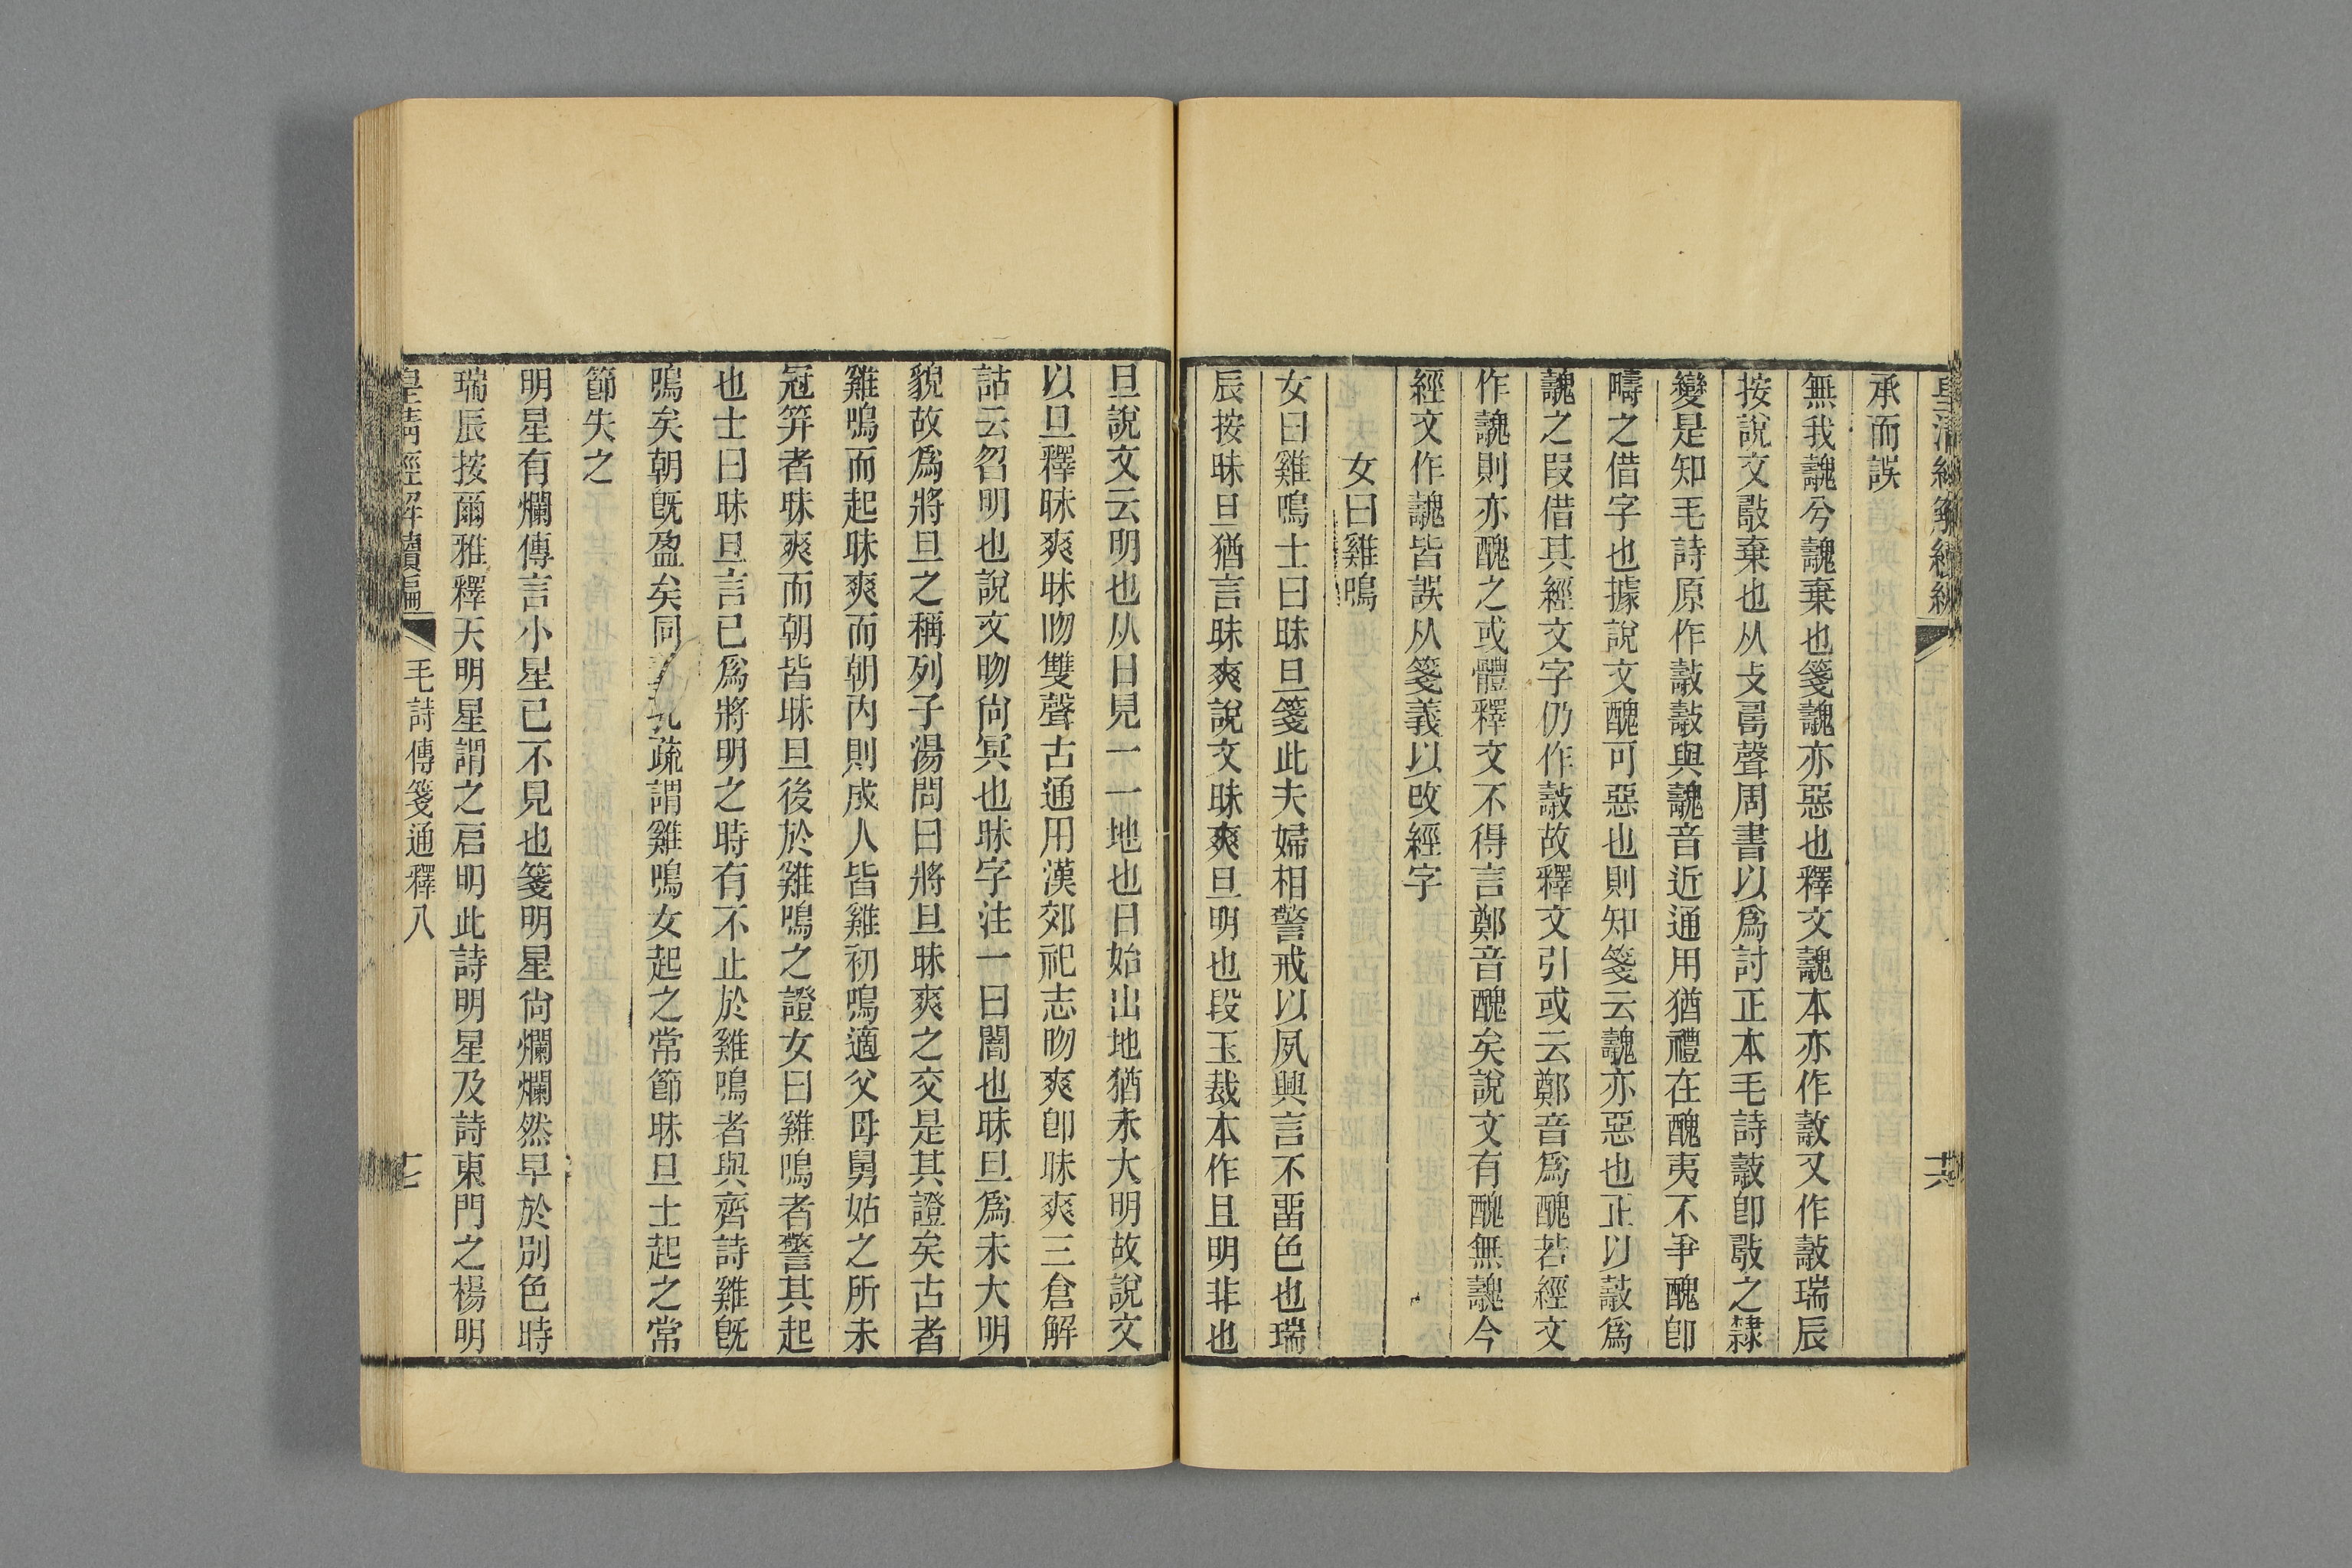 承而誤
無我𧴙兮𧴙棄也箋𧴙亦惡也釋文𧴙本亦作𣀳又作𣀘瑞辰
按說文𢿢棄也从攴𠷎聲周書以為討正本毛詩𣀘卽𢿢之隸
變是知毛詩原作𣀘𣀘與𧴙音近通用猶禮在醜夷不爭醜卽
疇之借字也據說文醜可惡也則知箋云𧴙亦惡也正以𣀘爲
𧴙之叚借其經文字仍作𣀘故釋文引或云鄭音爲醜若經文
作𧴙則亦醜之或體釋文不得言鄭音醜矣說文有醜無𧴙今
經文作𧴙皆誤从箋義以改經字
女曰雞鳴
女曰雞鳴士曰昧旦箋此夫婦相警戒以夙興言不畱色也瑞
辰按昧旦猶言昧爽說文昧爽旦明也段玉裁本作且明非也
旦說文云明也从日見一一地也日始出地猶未大明故說文
以旦釋昧爽昧昒雙聲古通用漢郊祀志昒爽卽昧爽三倉解
詁云曶明也說文昒尙冥也昧字注一曰闇也昧旦爲未大明
貌故爲將旦之稱列子湯問曰將旦昧爽之交是其證矣古者
雞鳴而起昧爽而朝內則成人皆雞初鳴適父母舅姑之所未
冠笄者昧爽而朝皆昧旦後於雞鳴之證女曰雞鳴者警其起
也士曰昧旦言已爲將明之時有不止於雞鳴者與齊詩雞旣
鳴矣朝旣盈矣同義孔疏謂雞鳴女起之常節昧旦士起之常
節失之
明星有爛傳言小星已不見也箋明星尙爛爛然早於別色時
瑞辰按爾雅釋天明星謂之启明此詩明星及詩東門之楊明
皇清經解續編 毛詩傳箋通釋八